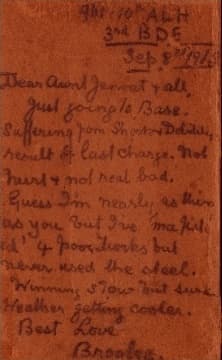 10th ALH
3rd BDE
Sep 8th 1915
Dear Aunt & all,
Just going to Base.
Suffering from Shock & Debility
result of last charge. Not
hurt & not real bad.
Guess I'm nearly as thin
as you but I've
4 poor but
never used the steel.
Winning slow but sure
Weather getting cooler.
Best Love